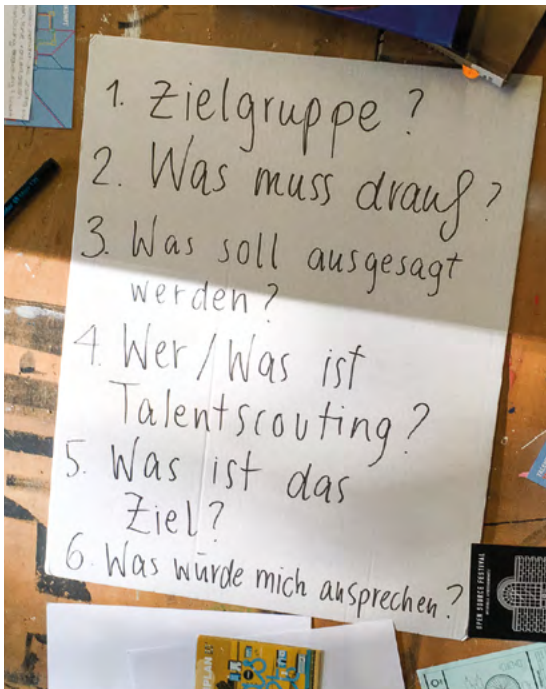 1. Zielgruppe?
2. Was muss drauf?
3. Was soll ausgesagt
werden?
4. Wer/Was ist
Talentscouting?
5. Was ist das
Ziel?
6. Was würde mich ansprechen?
OPEN SOURCE FESTIVAL
PLAN